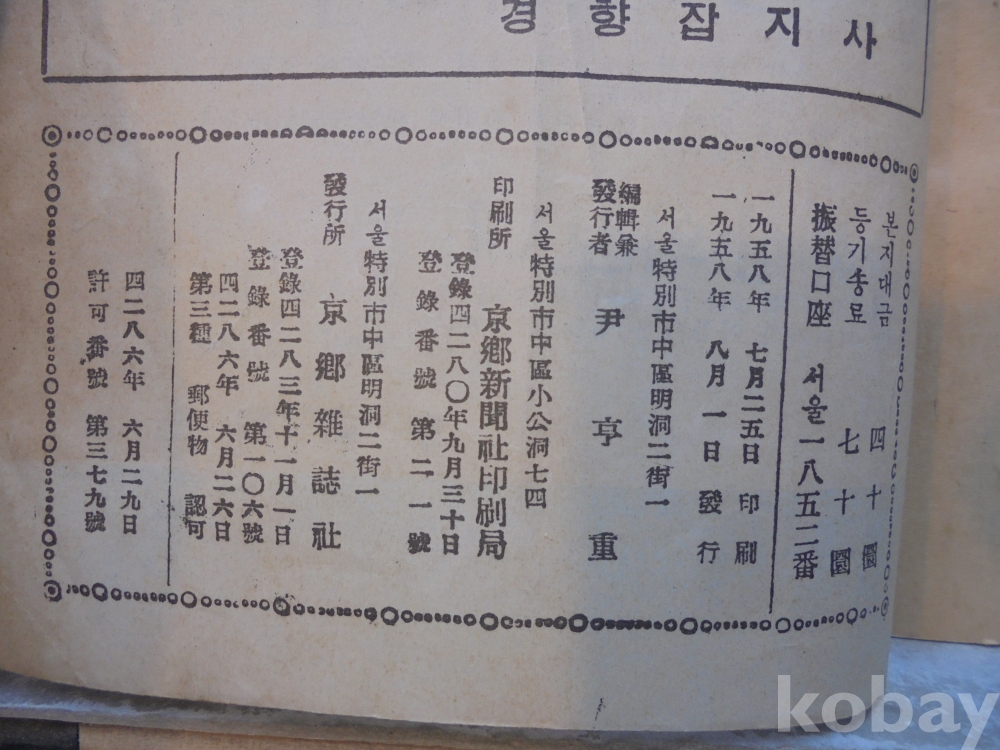 경향잡지사
본지대금 四十圜
등기송료 七十圜
振替口座 서울一八五二番
一九五八年 七月二五日 印刷
一九五八年 八月一日 發行
서울特別市中區明洞二街一
編輯兼
發行者 尹亨重
서울特別市中區小公洞七四
印刷所 京鄕新聞社印刷局
登錄四二八〇年九月三十日
登錄番號 第二一號
서울特別市中區明洞二街一
發行所 京鄕雜誌社
登錄四二八三年十一月一日
登錄番號 第一〇六號
四二八六年 六月二六日
第三種 郵便物 認可
四二八六年 六月二九日
許可番號 第三七九號
kobay